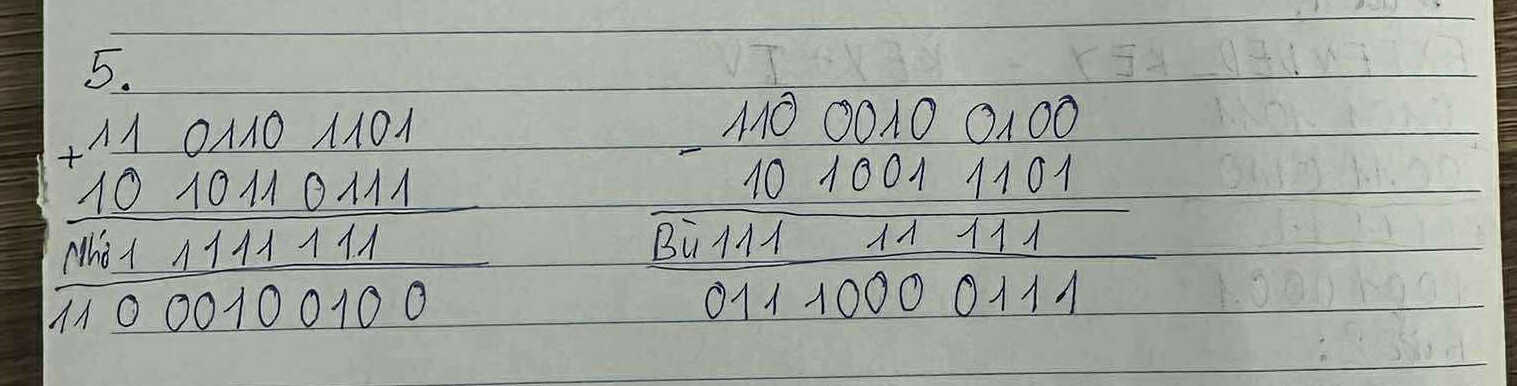 5.
+ 11 0110 1101
10 1011 0111
Nhớ 1 1111 111
110 0010 0100
- 110 0010 0100
10 1001 1101
Bù 111 11 111
011 1000 0111